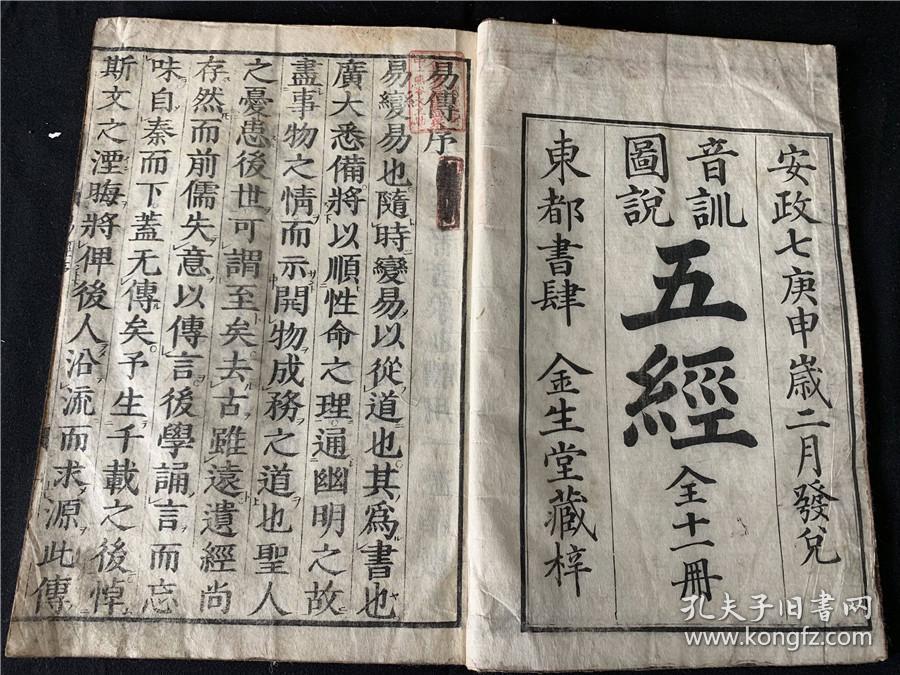 安政七庚申歳二月發兌
音訓
圖說
五經
全十一冊
東都書肆 金生堂藏梓
易傳序
易變易也隨時變易以從道也其爲書也
廣大悉備將以順性命之理通幽明之故
盡事物之情而示開物成務之道也聖人
之憂患後世可謂至矣去古雖遠遺經尚
存然而前儒失意以傳言後學誦言而忘
味自秦而下蓋无傳矣予生千載之後悼
斯文之湮晦將俾後人沿流而求源此傳
孔夫子旧书网
www.kongfz.com